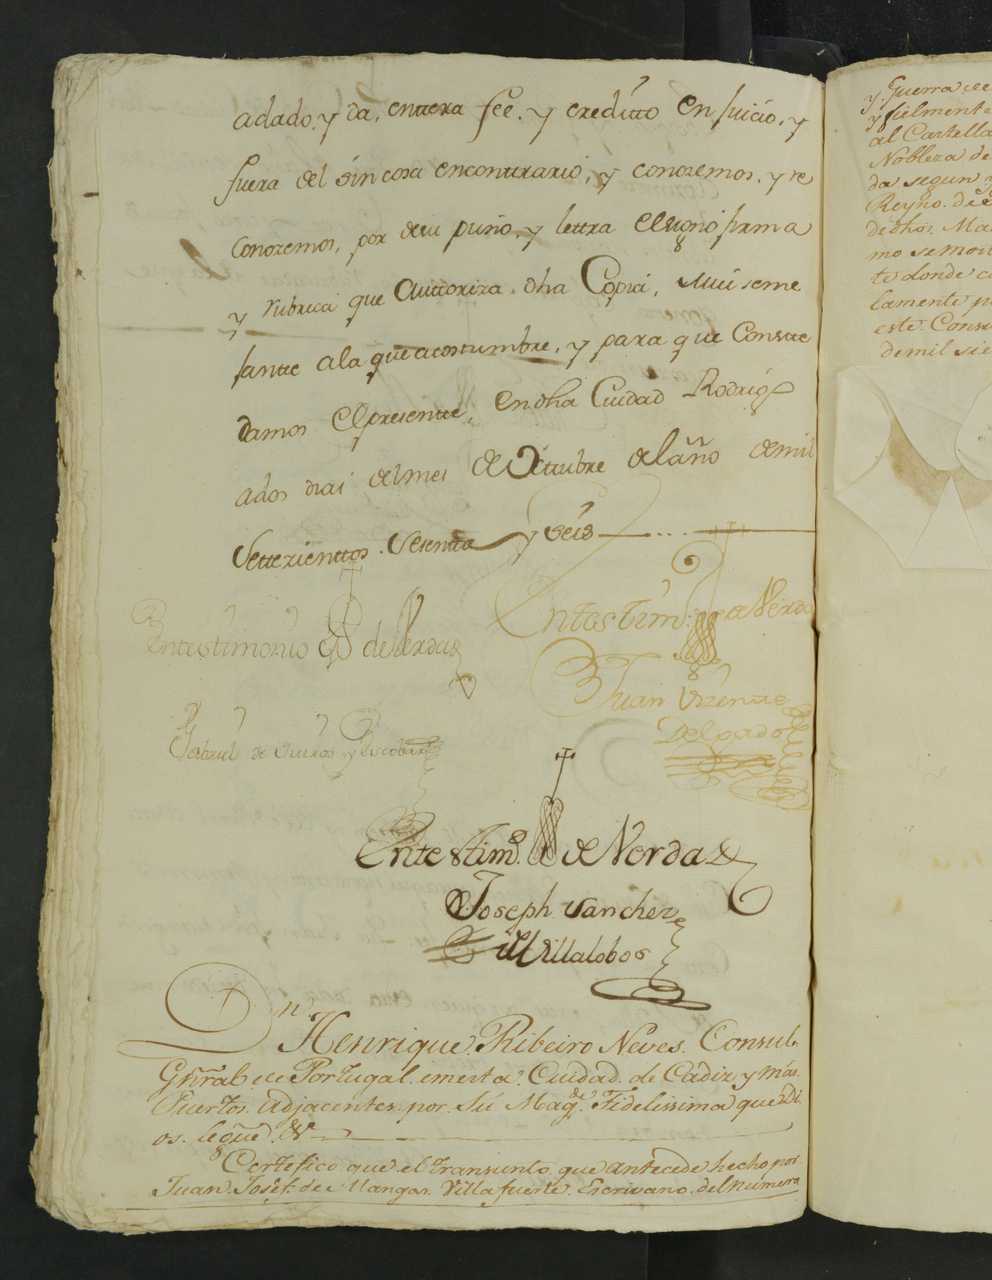 adado, y da, enttera fee, y creditto en Juicio, y
fuera del sin cosa encontrario, y conozemos, y re
conozemos, por de su puño, y lettra el signo firma
y rubrica que Auttoriza dha Copia, Mui seme
Jante ala que acostumbre, y para que Conste
damos el presente, en dha Ciudad Rodrigo
ados dias del mes de Octtubre del año de mil
Settezienttos Sesenta y seis
Entestimonio de Verdad
Entestim.o de Verdad
Juan Vizente
Delgado
Gabriel de y Escobar
Entestim.o de Verdad
Joseph Sanchez
Villalobos
Dn.
Henrique Ribeiro Neves. Consul.
Gñral de Portugal. em esta Cuidad. de Cádiz y más.
Puertos. Adjacentes. por. Sú Magde. Fidelissima que Di
os. Següe &
Certefico que el transunto que antecede hecho por
Juan Josef. de Mangas. Villafuerte. Escrivano. del numero
y Guerra
y fielmente
al Castella
Nobleza de
da segun
Reyno. de
dechos. Ma
mo se mon
to donde c
lamente p
este Consu
de mil sie